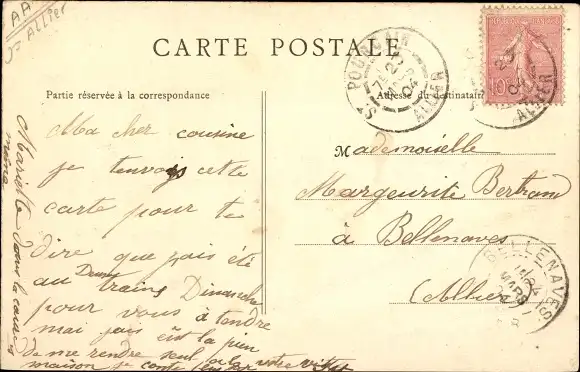 AA
Allier
CARTE POSTALE
Partie réservée à la correspondance
Adresse du destinataire
ST POURÇAIN
ALLIER
10
Ma cher cousine
je tenvois cette
carte pour te
dire que jais été
au Deux trains Dimanche
pour vous à tendre
mai jais
de me rendre seul a la votre
maison je conte
Mademoiselle
Margeurite Bertrand
à Bellenaves
(Allier)
BELLENAVES
MARS
Mariette